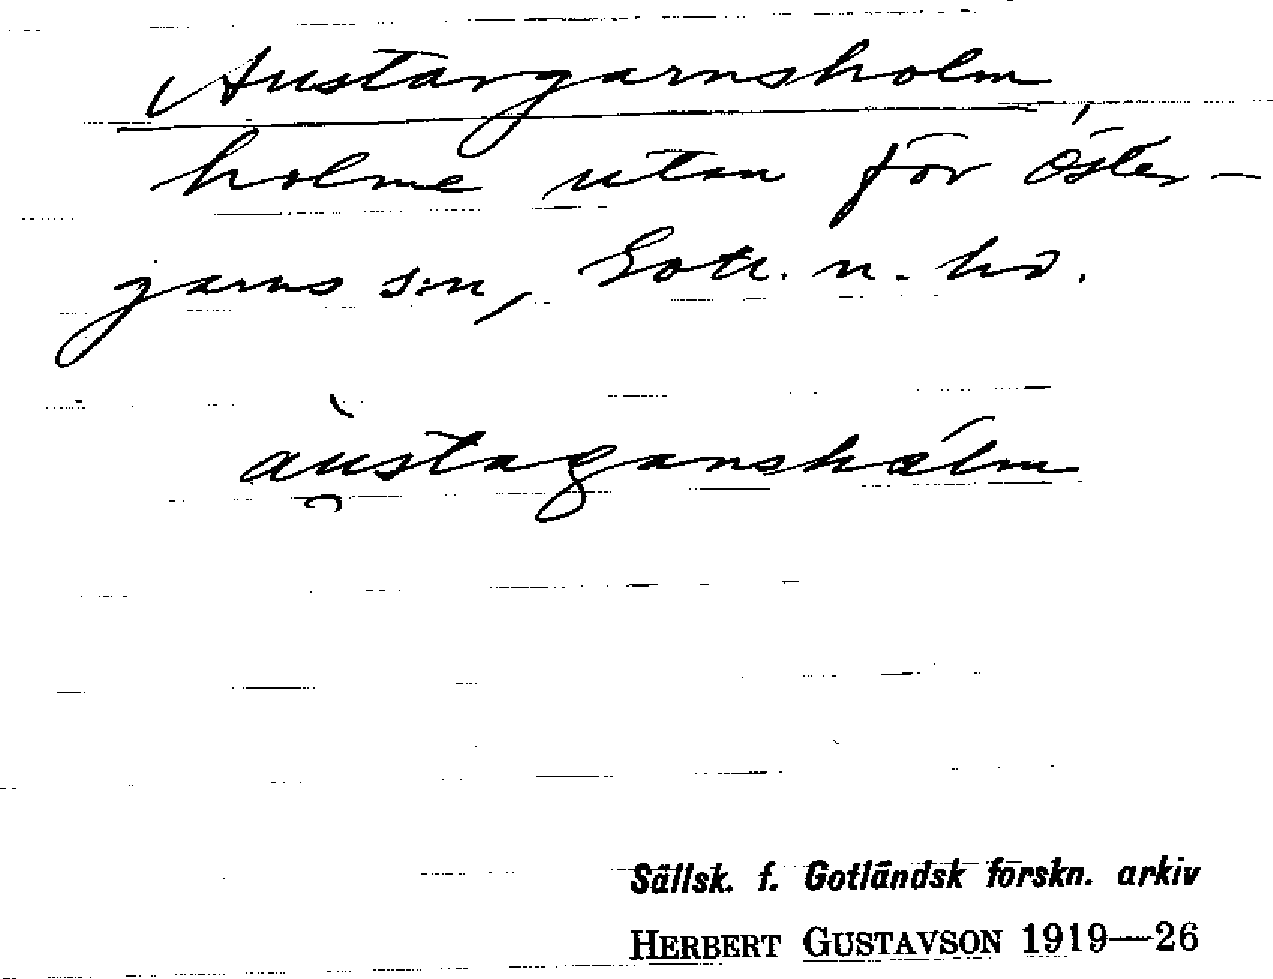 Austargarnsholm,
holme utan för Öster-
garns sn, Gotl. n. hd.
àu̯staganshålm
Sällsk. f. Gotländsk forskn. arkiv
HERBERT GUSTAVSON 1919—26